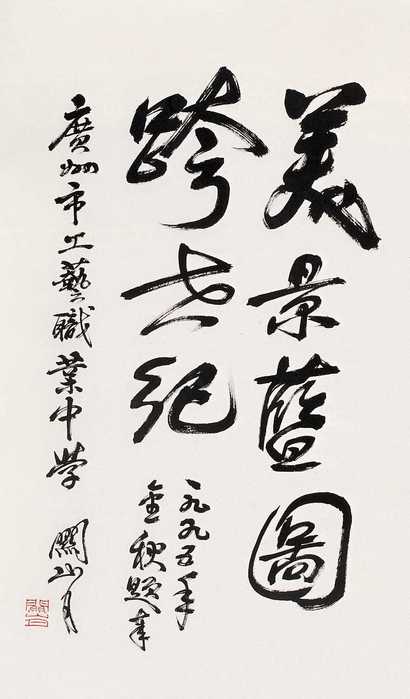 美景藍圖
跨世紀
一九九五年
金秋題奉
廣州市工藝職業中學
關山月